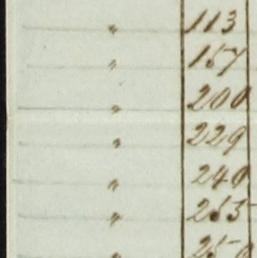 " 113
" 157
" 200
" 229
" 240
" 253
" 250